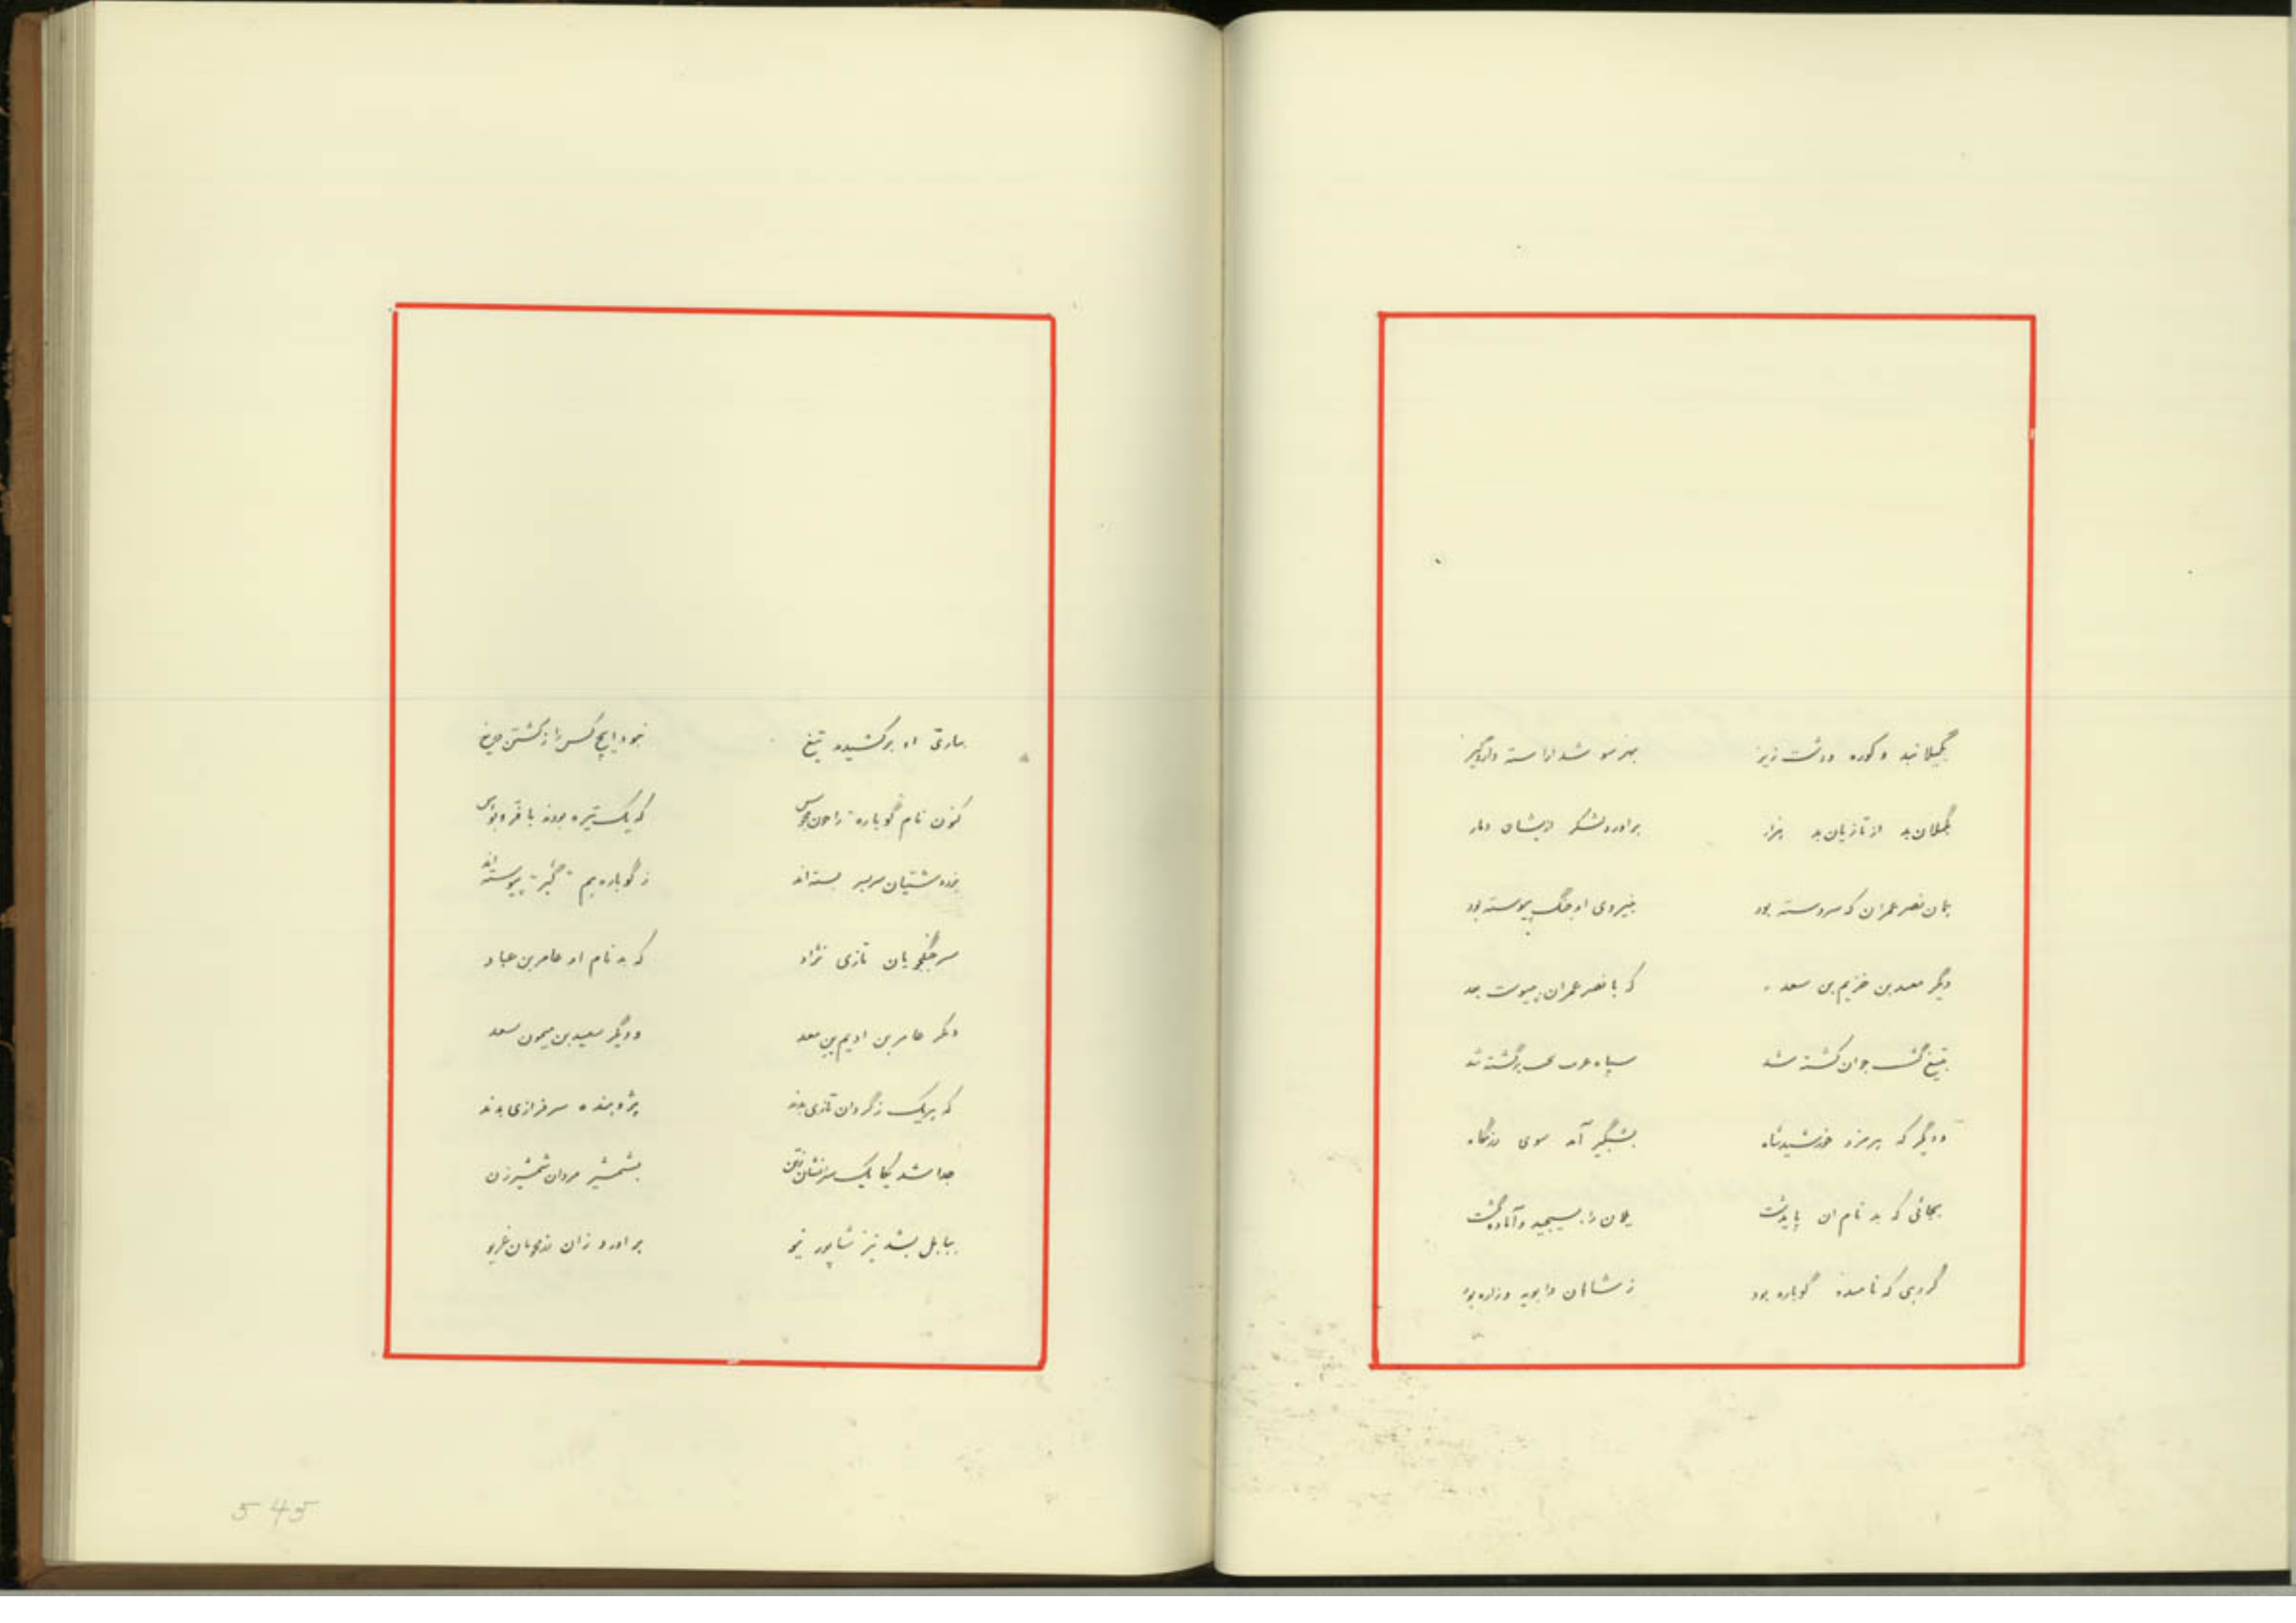 بگیلانبد و کوره ودشت زیر بهر سو شد اراسته داروگیر
بگیلان بد از تازیان بد هزار براورد لشکر ازیشان دمار
بمان نصر عمران که سروسته بود بنیروی او جنگ پیوسته بود
دیگر معد بن خزیم بن سعد که با نصر عمران بپیوست بعد
بتیغ گشسب جوان کشته شد سپاه عرب برگشته شد
ودیگر که پرمزد خورشیدشاه بشبگیر آمد سوی رزمگاه
بجائی که بد نام ان پایدشت یلان را بسیجید و آماده گشت
گروهی که نامنده گوباره بود ز شاهان دابویه وزاره بود
بماری او برکشیده تیغ نبود ایچ کس را ز کشتن دریغ
کنون نام گوباره را خون مجوس که یک تیره بودند با فر و بوس
زردشتیان سربسر جسته‌اند ز گوباره هم "گبر" پیوسته‌اند
سر جنگجویان تازی نژاد که بد نام او عامر بن عباد
دگر عامر بن ادیم بن معد ودیگر سعید بن میمون سعد
که هریک ز گردان تازی بدند پژوهنده سرفرازی بدند
جدا شد یکایک سرانشان ز تن بشمشیر مردان شمشیرزن
ببابل بشد نیز شاپور نیو براورد زان رزمجویان غریو
545